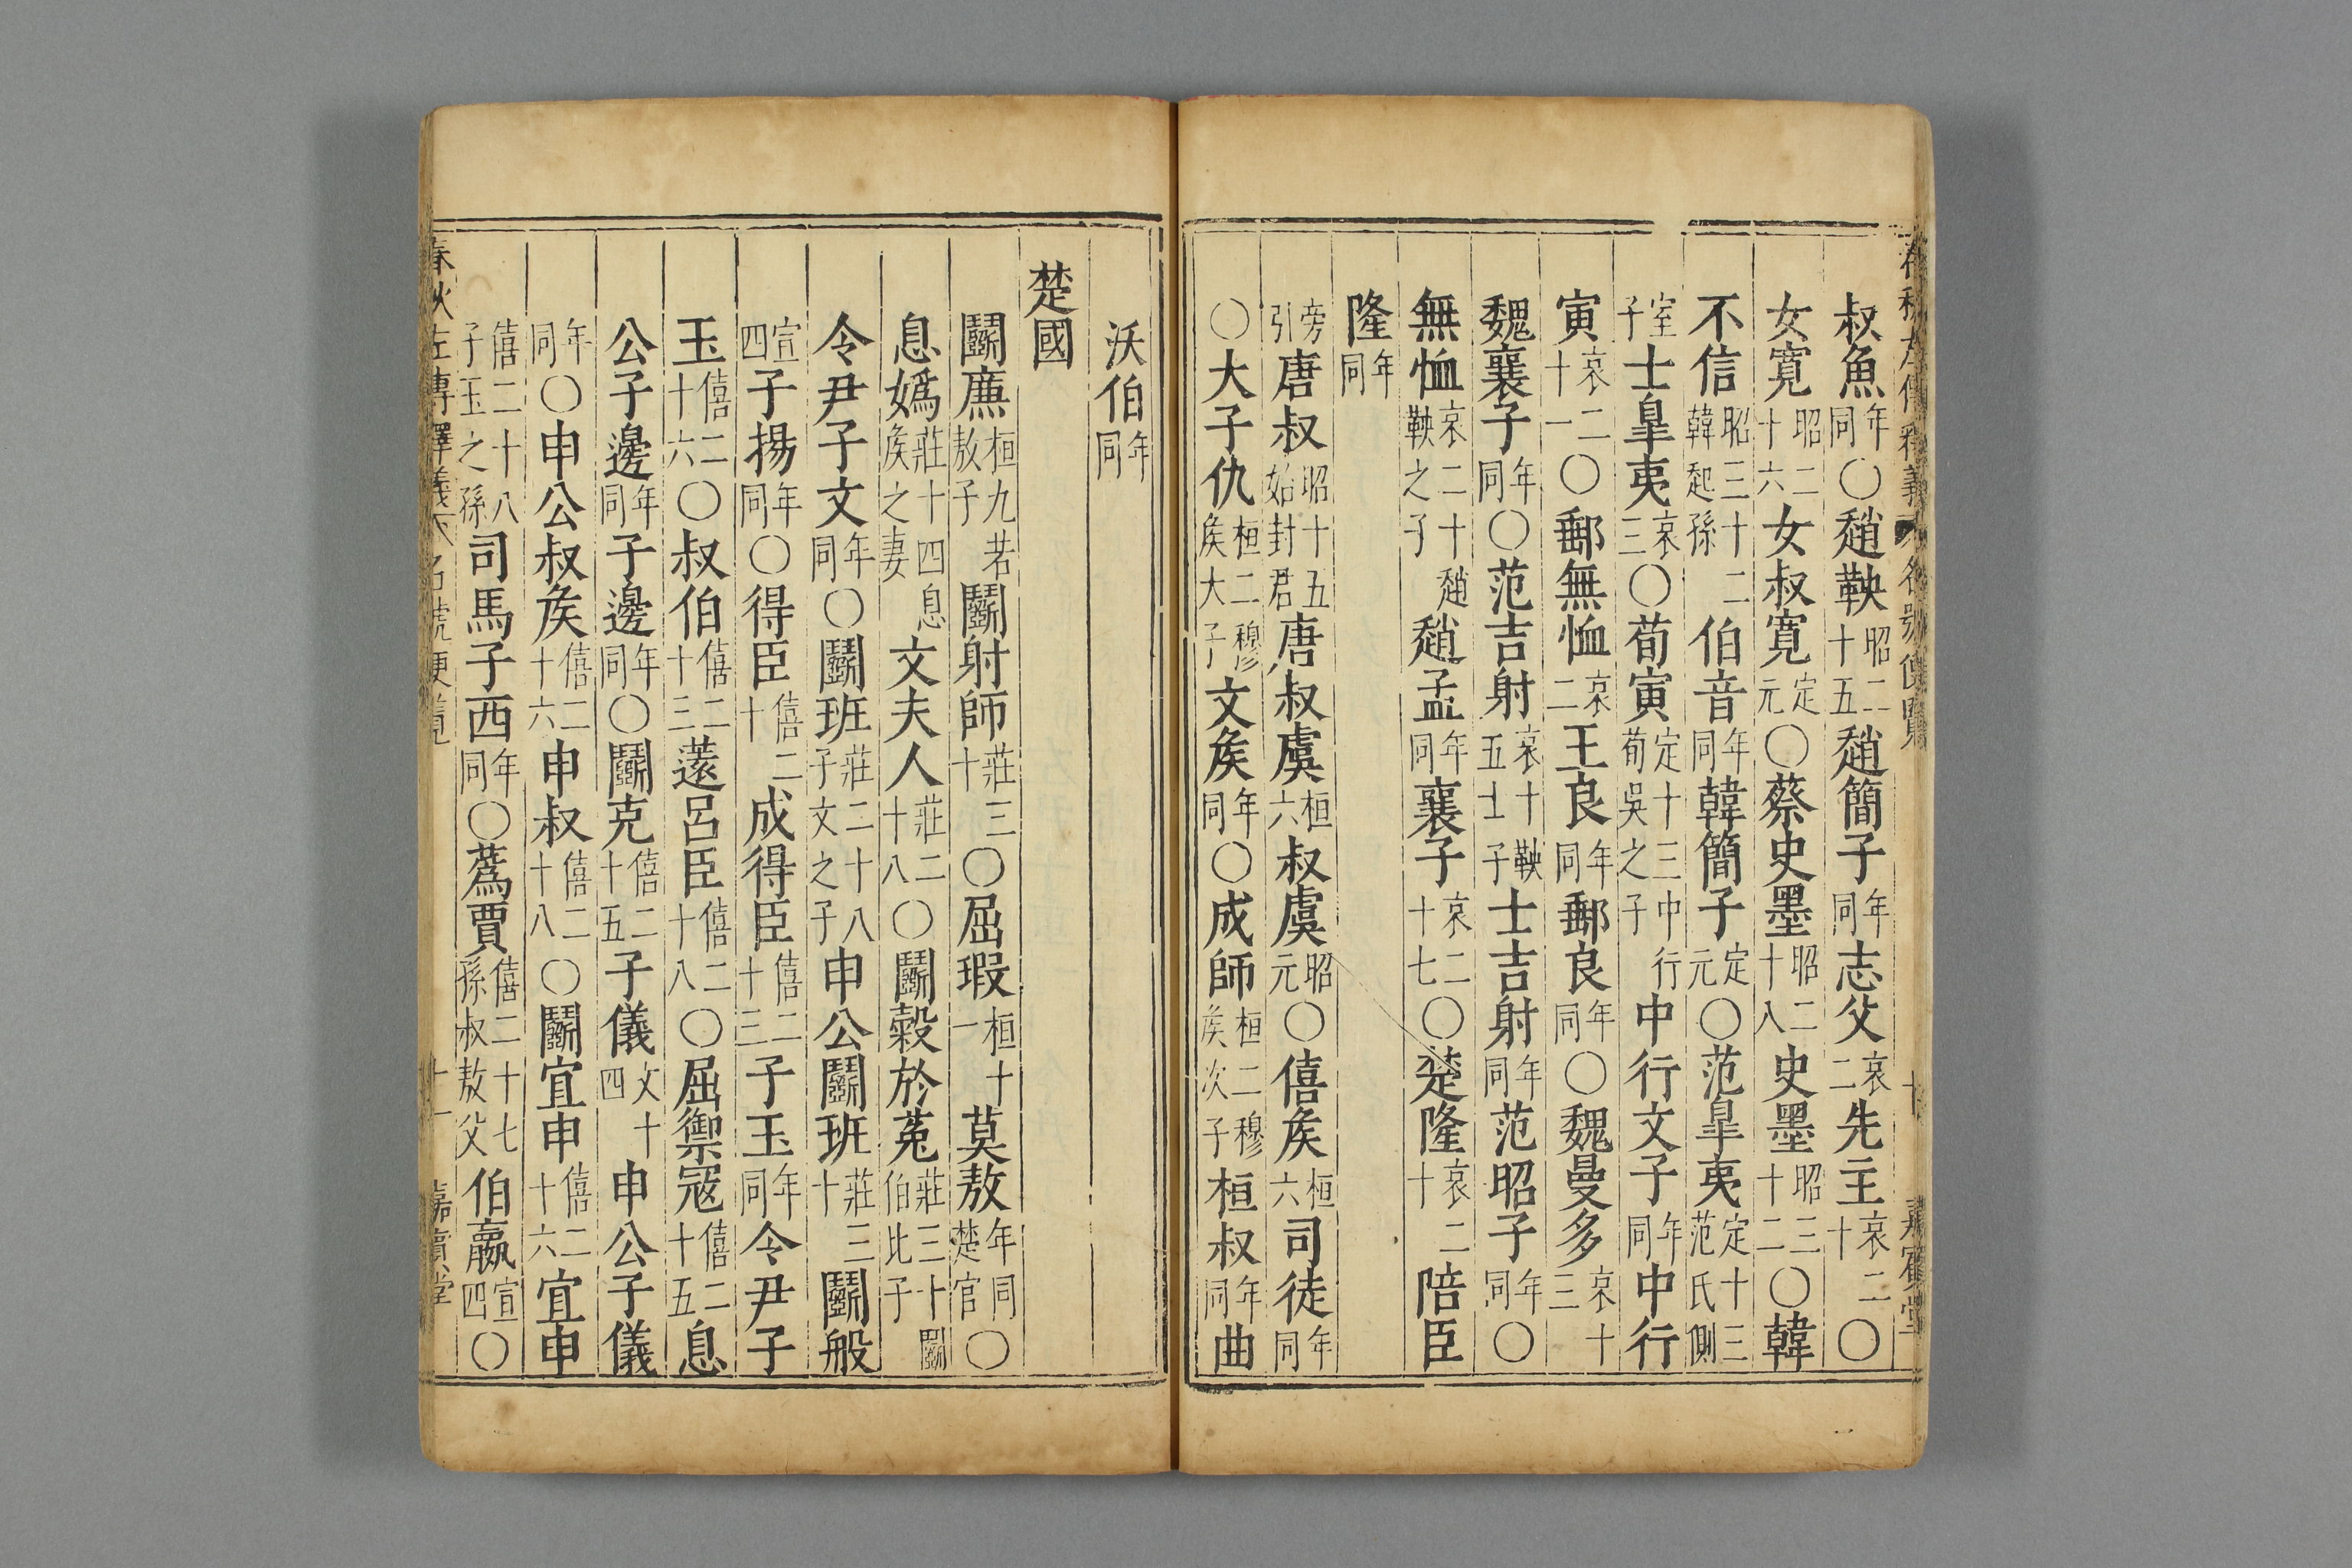 春秋左傳釋義大 名號便覽 十 嘉賓堂
叔魚年同〇趙鞅昭二十五趙簡子年同志父哀二先主哀二十〇
女寬昭二十六女叔寬定元〇蔡史墨昭二十八史墨昭三十二〇韓
不信昭三十二韓起孫伯音年同韓簡子定元〇范臯夷定十三范氏側
室子士臯夷哀三〇荀寅定十三中行荀吳之子中行文子年同中行
寅哀二十一〇郵無恤哀二王良年同郵良年同〇魏曼多哀十三
魏襄子年同〇范吉射哀十鞅五士子士吉射年同范昭子年同〇
無恤哀二十趙鞅之子趙孟年同襄子哀二十七〇楚隆哀二十陪臣
隆年同
旁引唐叔昭十五始封君唐叔虞桓六叔虞昭元〇僖矦桓六司徒年同
〇大子仇桓二穆矦大子文矦年同〇成師桓二穆矦次子桓叔年同曲
沃伯年同
楚國
鬭廉桓九若敖子鬭射師莊三十〇屈瑕桓十一莫敖年同楚官〇
息媯莊十四息矦之妻文夫人莊二十八〇鬭穀於菟莊三十鬭伯比子
令尹子文年同〇鬭班莊二十八子文之子申公鬭班莊三十鬭般
宣四子揚年同〇得臣僖二十成得臣僖二十三子玉年同令尹子
玉僖二十六〇叔伯僖二十三薳呂臣僖二十八〇屈禦寇僖二十五息
公子邊年同子邊年同〇鬭克僖二十五子儀文十四申公子儀
年同〇申公叔矦僖二十六申叔僖二十八〇鬭宜申僖二十六宜申
僖二十八子玉之孫司馬子西年同〇蒍賈僖二十七孫叔敖父伯嬴宣四〇
春秋左傳釋義大 名號便覽 十一 嘉賓堂